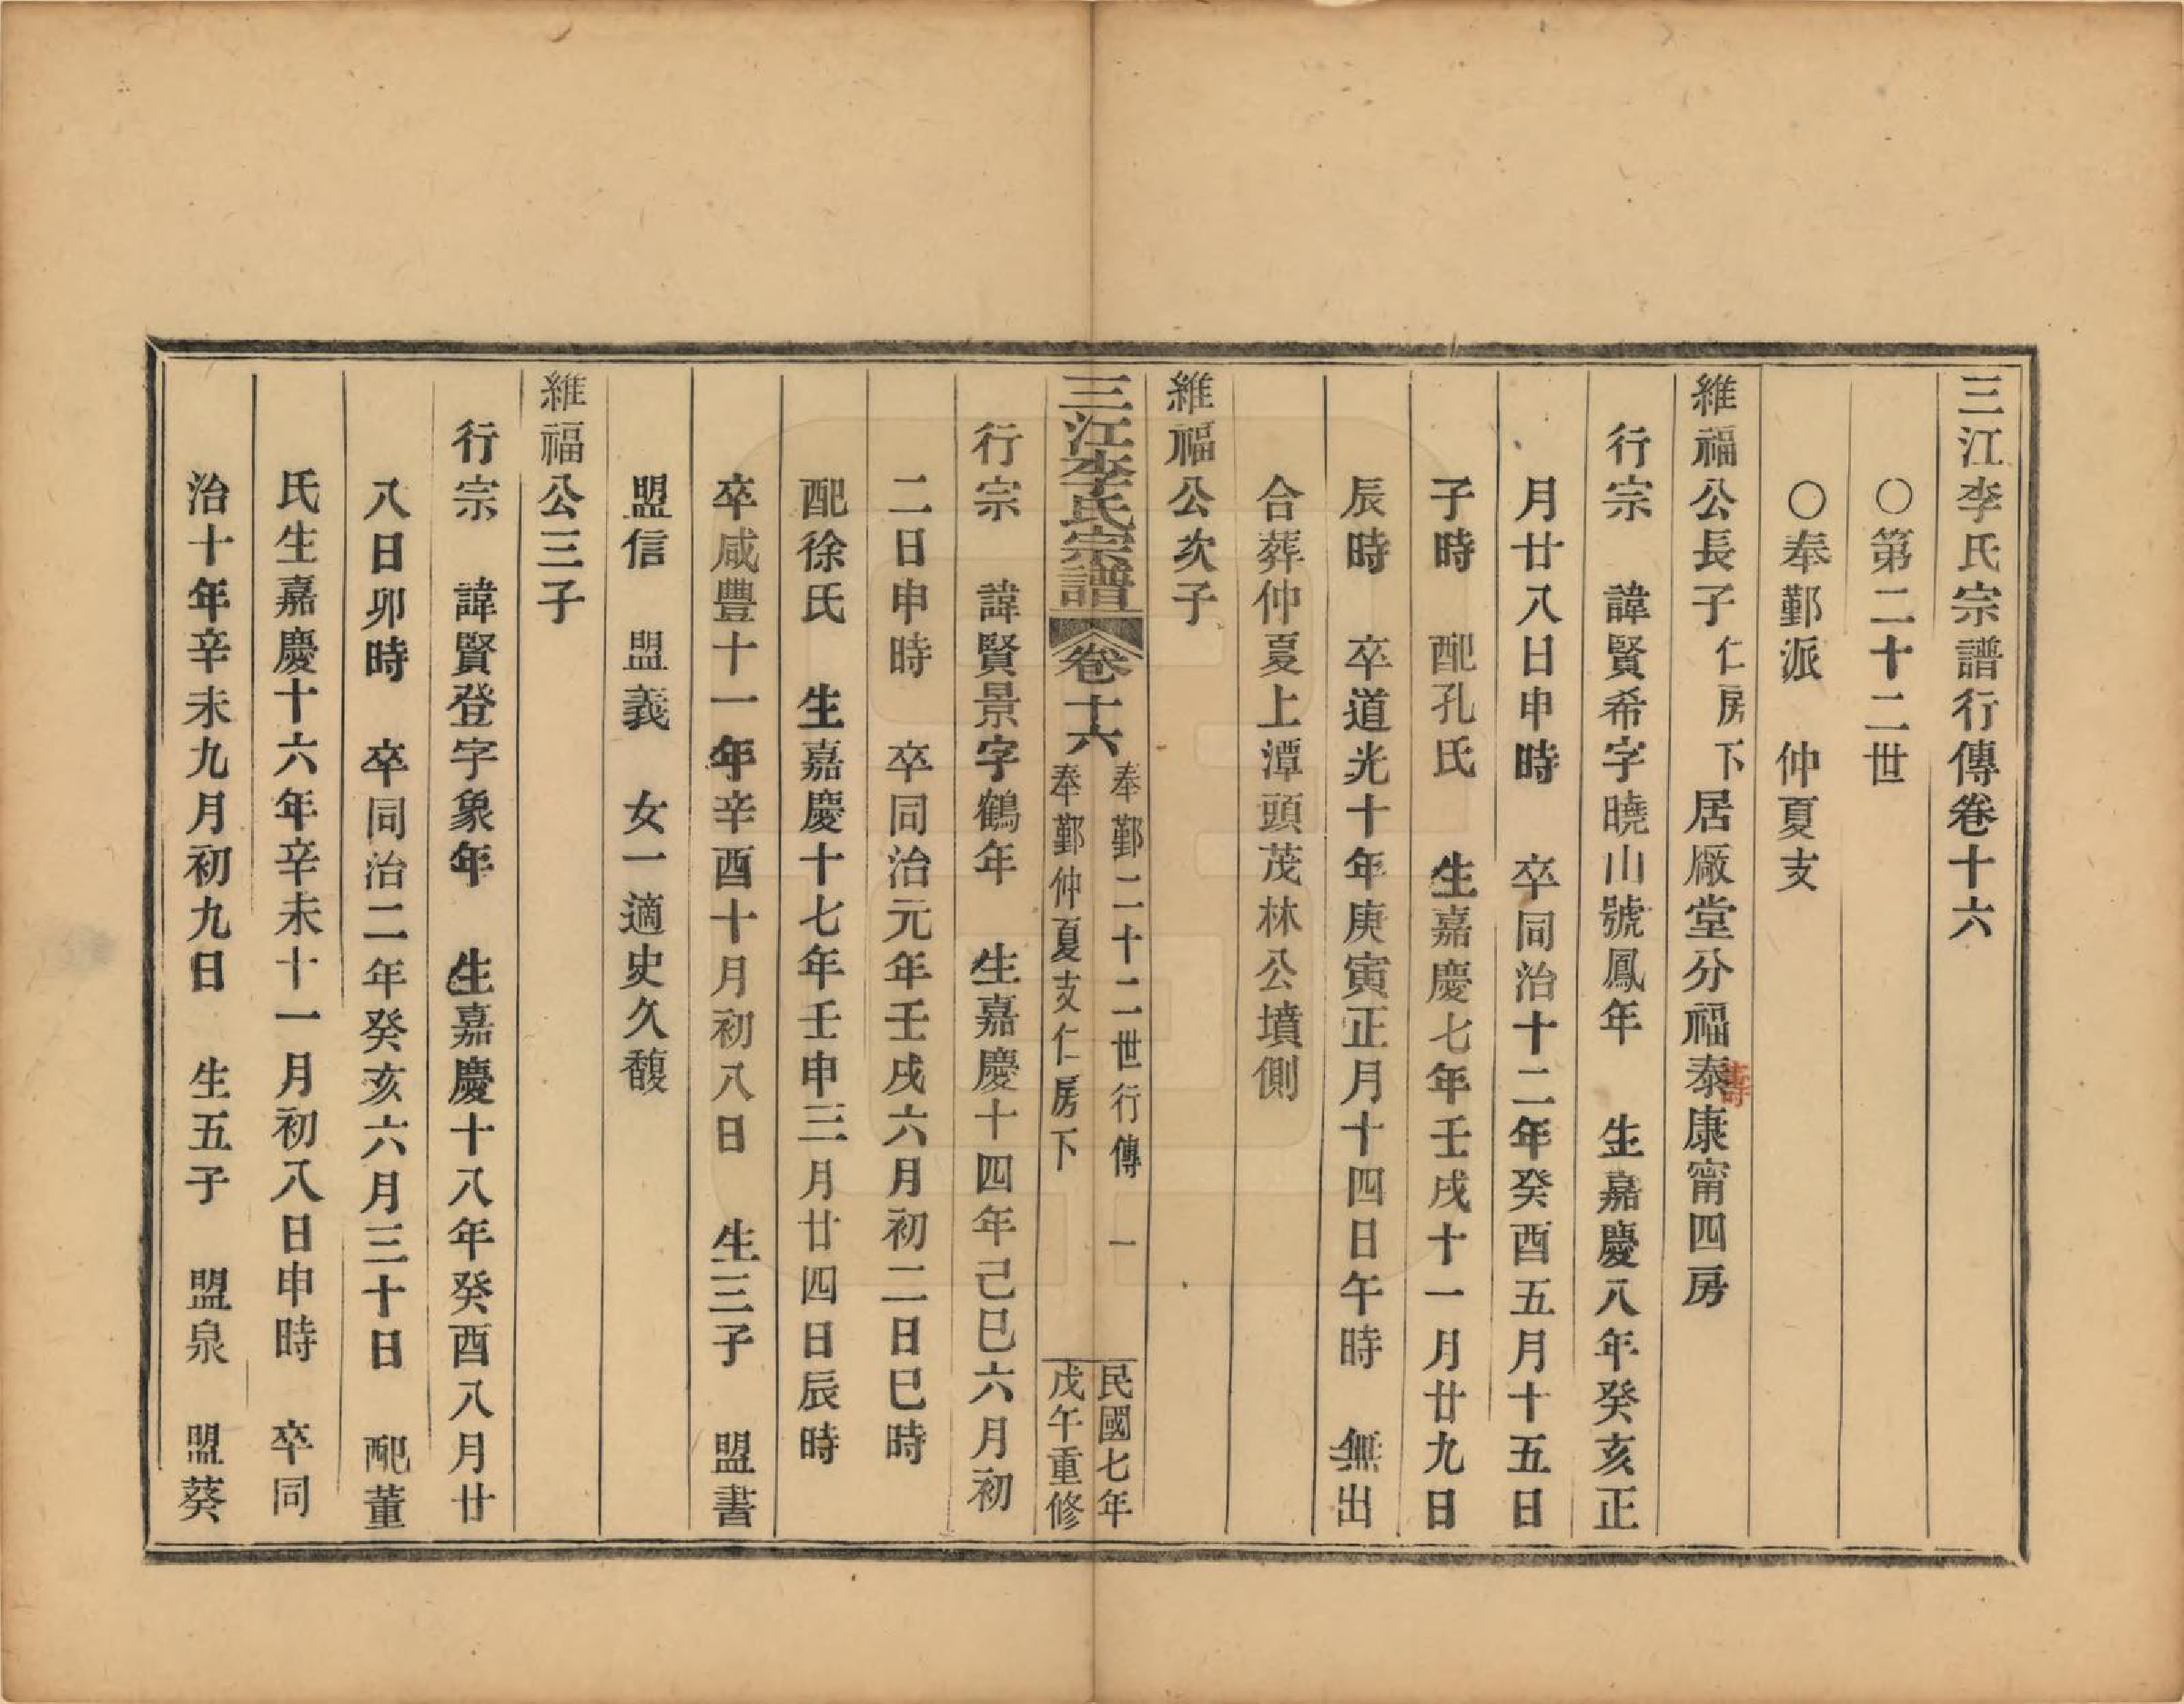 三江李氏宗譜行傳卷十六
○第二十二世
○奉鄞派　仲夏支
維福公長子　仁房下居廠堂分福泰康甯四房
壽
行宗　諱賢希字曉山號鳳年　生嘉慶八年癸亥正
月廿八日申時　卒同治十二年癸酉五月十五日
子時　配孔氏　生嘉慶七年壬戌十一月廿九日
辰時　卒道光十年庚寅正月十四日午時　無出
合葬仲夏上潭頭茂林公墳側
維福公次子
三江李氏宗譜　卷十六
奉鄞二十二世行傳　一
奉鄞仲夏支仁房下
民國七年
戊午重修
行宗　諱賢景字鶴年　生嘉慶十四年己巳六月初
二日申時　卒同治元年壬戌六月初二日巳時
配徐氏　生嘉慶十七年壬申三月廿四日辰時
卒咸豐十一年辛酉十月初八日　生三子　盟書
盟信　盟義　女一適史久馥
維福公三子
行宗　諱賢登字象年　生嘉慶十八年癸酉八月廿
八日卯時　卒同治二年癸亥六月三十日　配董
氏生嘉慶十六年辛未十一月初八日申時　卒同
治十年辛未九月初九日　生五子　盟泉　盟葵